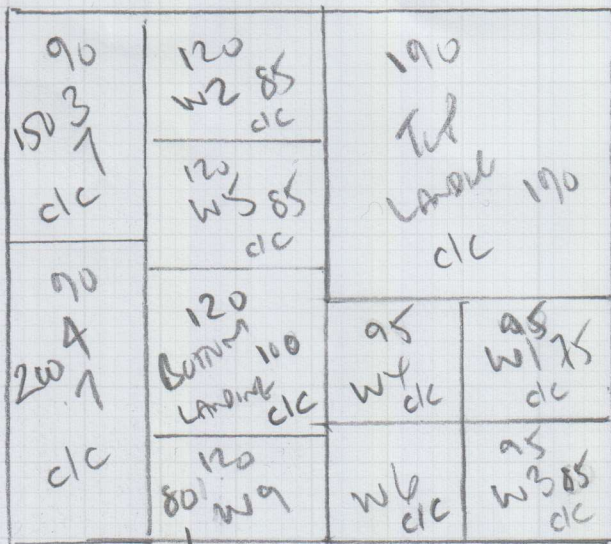 90
150 3
1
c/c
90
200 4
1
c/c
120
W2 85
c/c
120
W5 85
c/c
120
BOTTOM 100
LANDING c/c
120
80 W9
190
TOP
LANDING 190
c/c
95
W4
c/c
95
W1 75
c/c
W6
c/c
95
W3 85
c/c